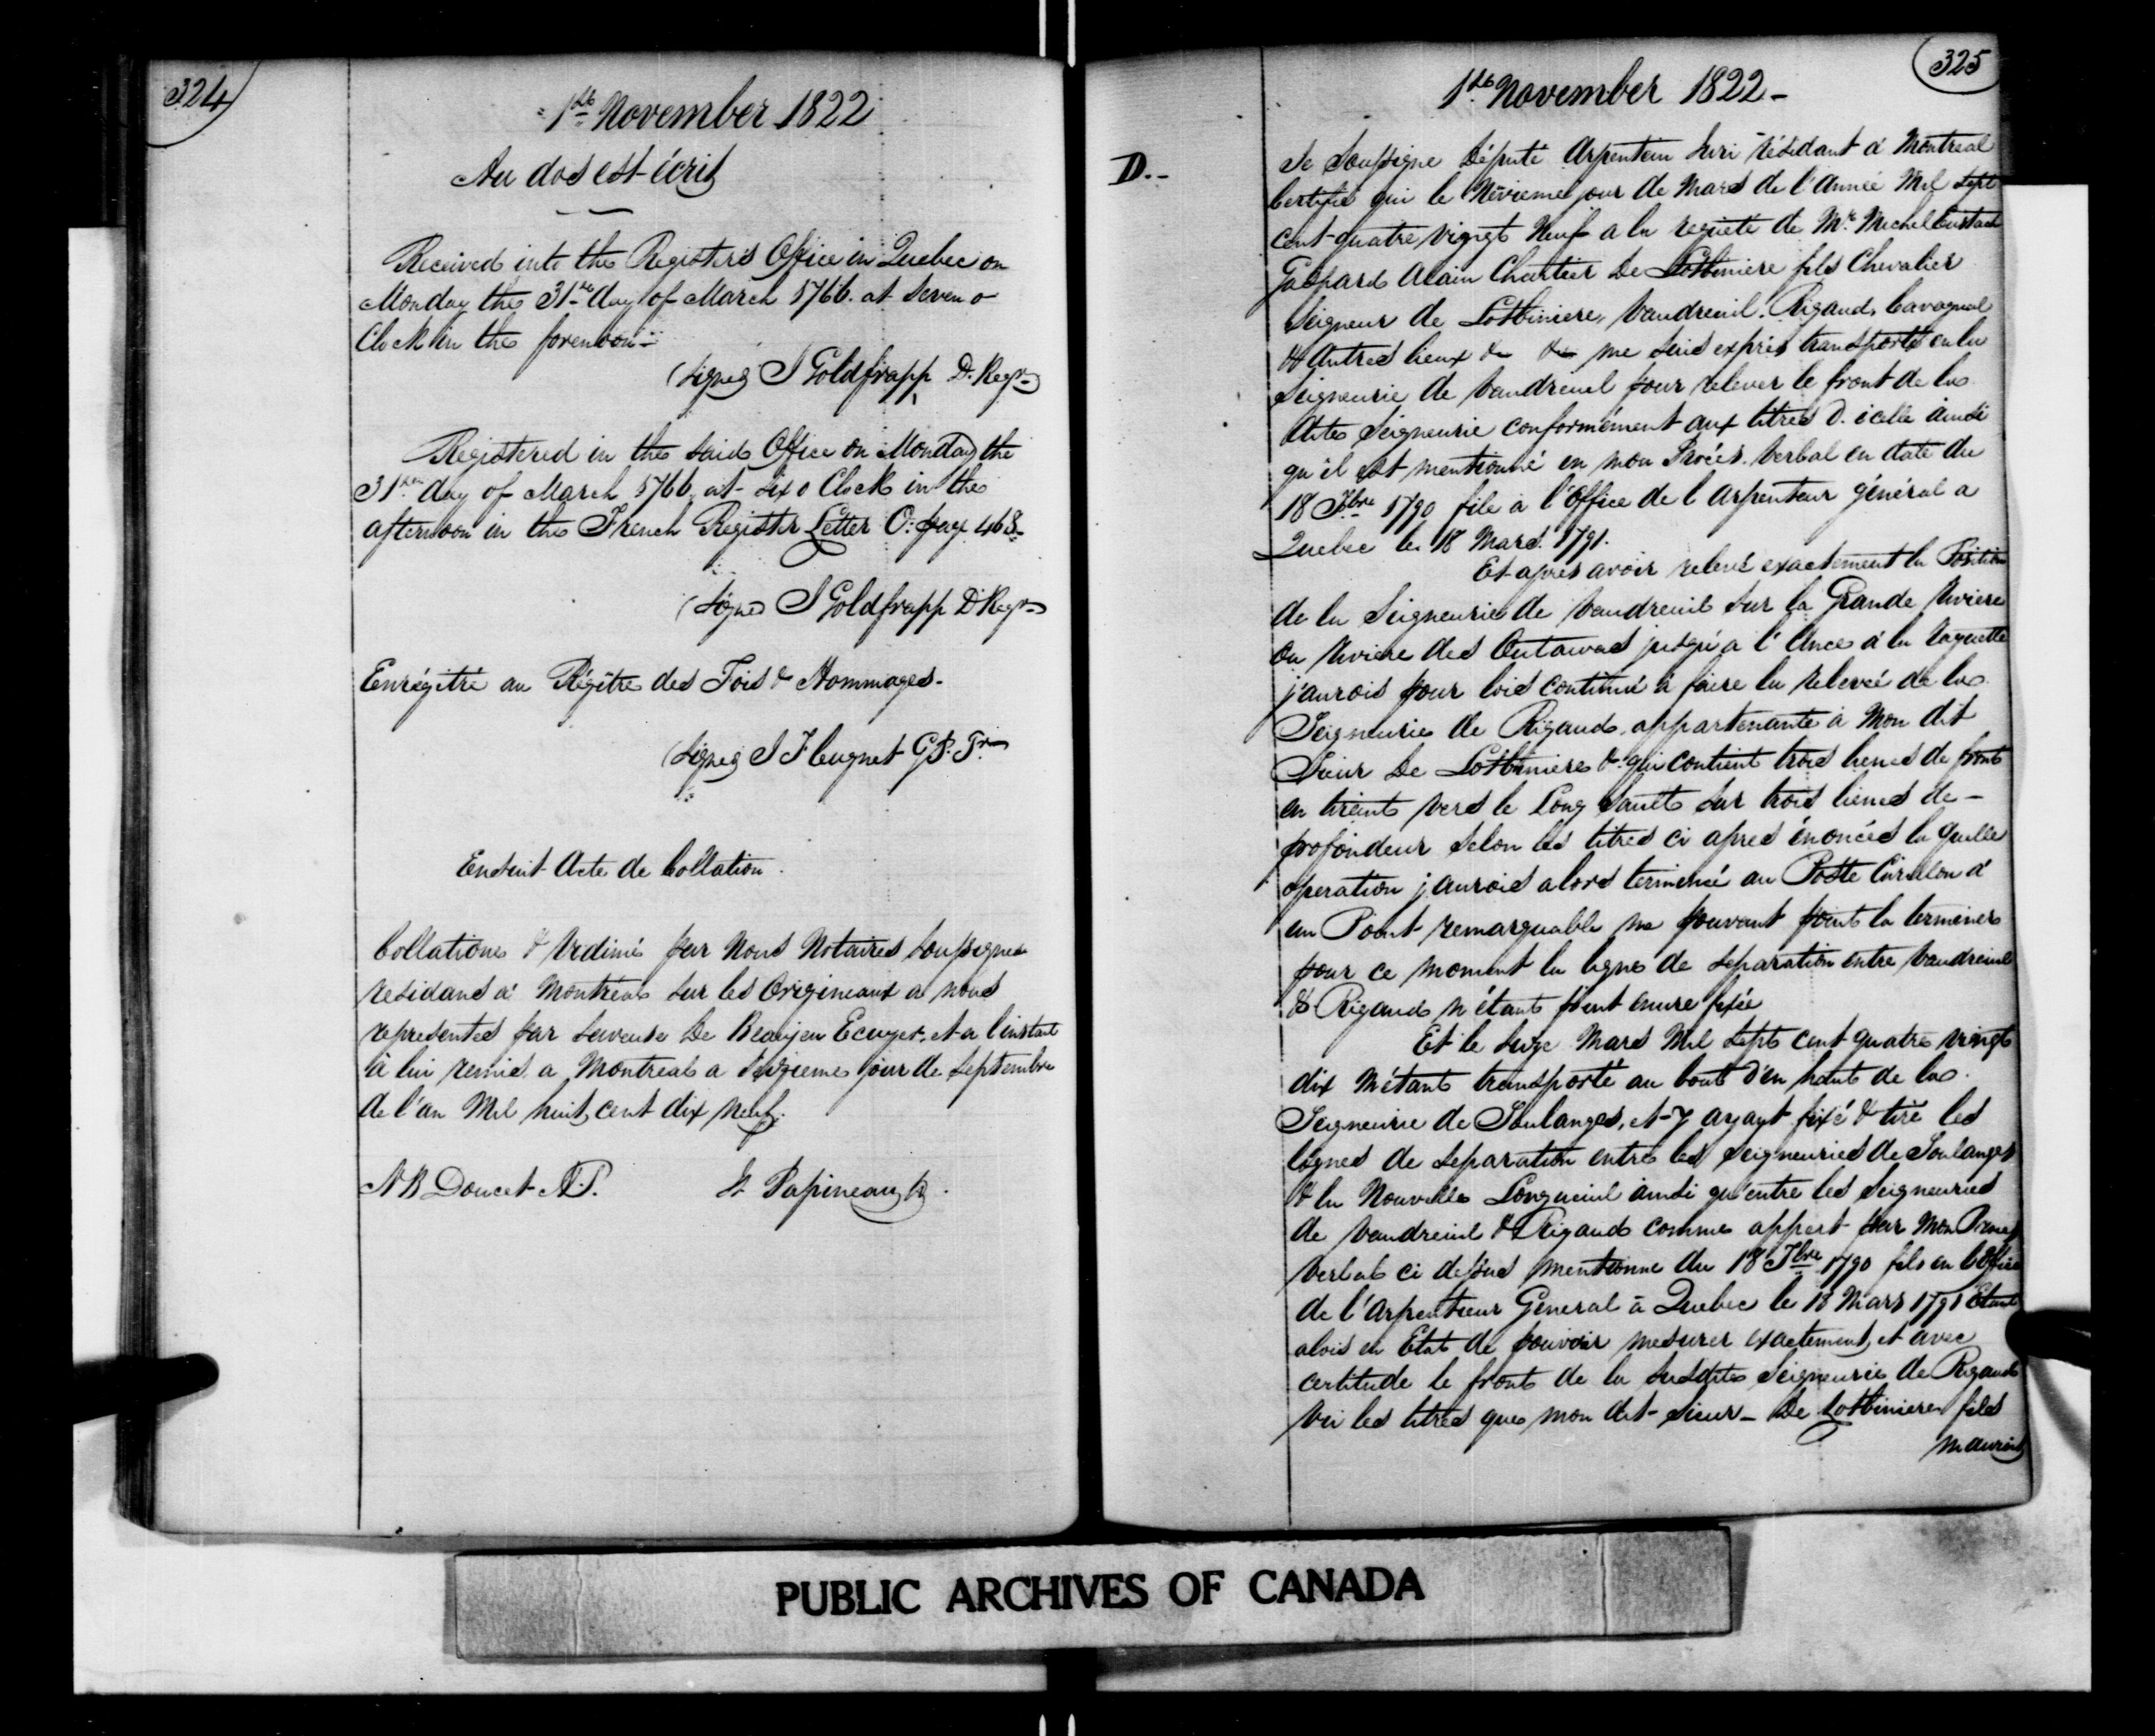 324
1st November 1822
Au dos est écrit
Received into the Registers Office in Quebec on
Monday the 31st day of March 1766. at Seven o
Clock in the forenoon
(Signé) J Goldfrapp D. Regr
Registered in the said Office on Monday the
31st day of March 1766 at six o Clock in the
afternoon in the French Register Letter O: page 468
(Signé) J Goldfrapp D Regr
Enrégitré au Régître des Fois & Hommages.
(Signé) J F Cugnet G.P.T.
Ensuit Acte de Collation.
Collationé & Vidimé par Nous Notaires Soussignés
residans a Montréal sur les Origineaux a nous
representés par Saveuse De Beaujeu Ecuyer, et a l'instant
à lui remis a Montreal a Seizieme jour de Septembre
de l'an Mil huit cent dix neuf.
N B Doucet N.P.
Papineau
325
1st November 1822 -
D.-
Je Soussigné Député Arpenteur Juré résidant à Montreal
Certifie que le Neuvieme jour de Mars de l'Année Mil Sept
cent quatre vignt Neuf a la requête de Mr. Michel Eustach
Gaspard Alain Chartier De Lotbiniere fils Chevalier
Seigneur de Lotbiniere, Vaudreuil. Rigaud, Cavagnal
& Autres lieux & & me suis exprès transporté en la
Seigneurie de Vaudreuil pour relever le front de la
dite Seigneurie conformément aux titres d. icelle ainsi
qu'il est mentionné en mon Procès. Verbal en date du
18 7bre 1790 filé à l'Office de l Arpenteur général a
Quebec le 18 Mars. 1791.
Et après avoir relevé exactement la Position
de la Seigneurie de Vaudreuil sur la Grande Riviere
ou Riviere des Outawas jusqu'a l'Ance à la Raquette
j'aurois pour lois continué à faire la relevée de la
Seigneurie de Rigaud, appartenante à Mon dit
Sieur De Lotbiniere & qui contient trois lieues de front
en tirant vers le Long Sault sur trois lieues de -
profondeur selon les titres ci apres énoncés la quelle
operation j aurois alors terminée au Poste Carillon à
un Point remarquable ne pouvant point la terminer
pour ce moment la ligne de separation entre Vaudreuil
& Rigaud n'étant point encore fixée
Et le Seize Mars Mil Sept cent quatre vingt
dix M'étant transporté au bout d'en haut de la
Seigneurie de Soulanges, et y ayant fixé & tiré les
lignes de separation entre les Seigneuries de Soulanges
& la Nouvelle Longueuil ainsi qu'entre les Seigneuries
de Vaudreuil & Rigaud comme appert par Mon Procès
Verbal ci dessus mentionné du 18 7bre 1790 filé en l'Office
de l'Arpenteur General à Quebec le 18 Mars 1791 Etant
alois en Etat de pouvoir mesurer exactement, et avec
certitude le front de la Susdite Seigneurie de Rigaud
Vu les titres que mon dit Sieur - De Lotbiniere fils
m'auroit
PUBLIC ARCHIVES OF CANADA